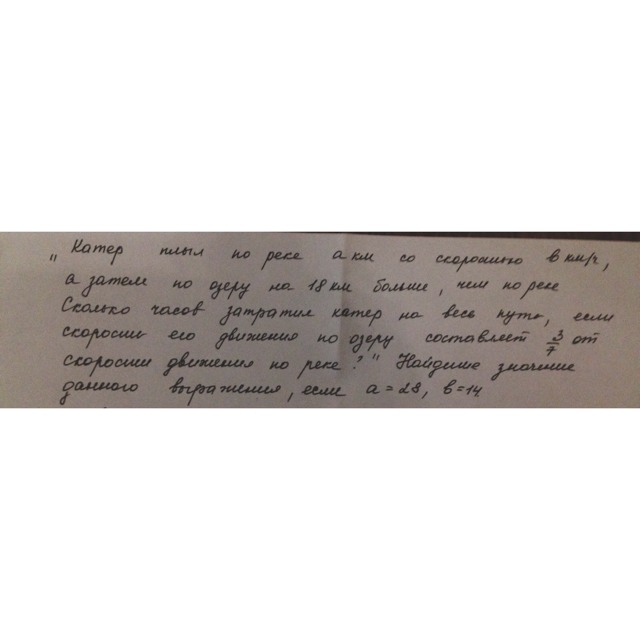 „Катер плыл по реке а км со скоростью в км/ч,
а затем по озеру на 18 км больше, чем по реке
Сколько часов затратил катер на весь путь, если
скорость его движения по озеру составляет 3/7 от
скорости движения по реке?" Найдите значение
данного выражения, если а=28, в=14